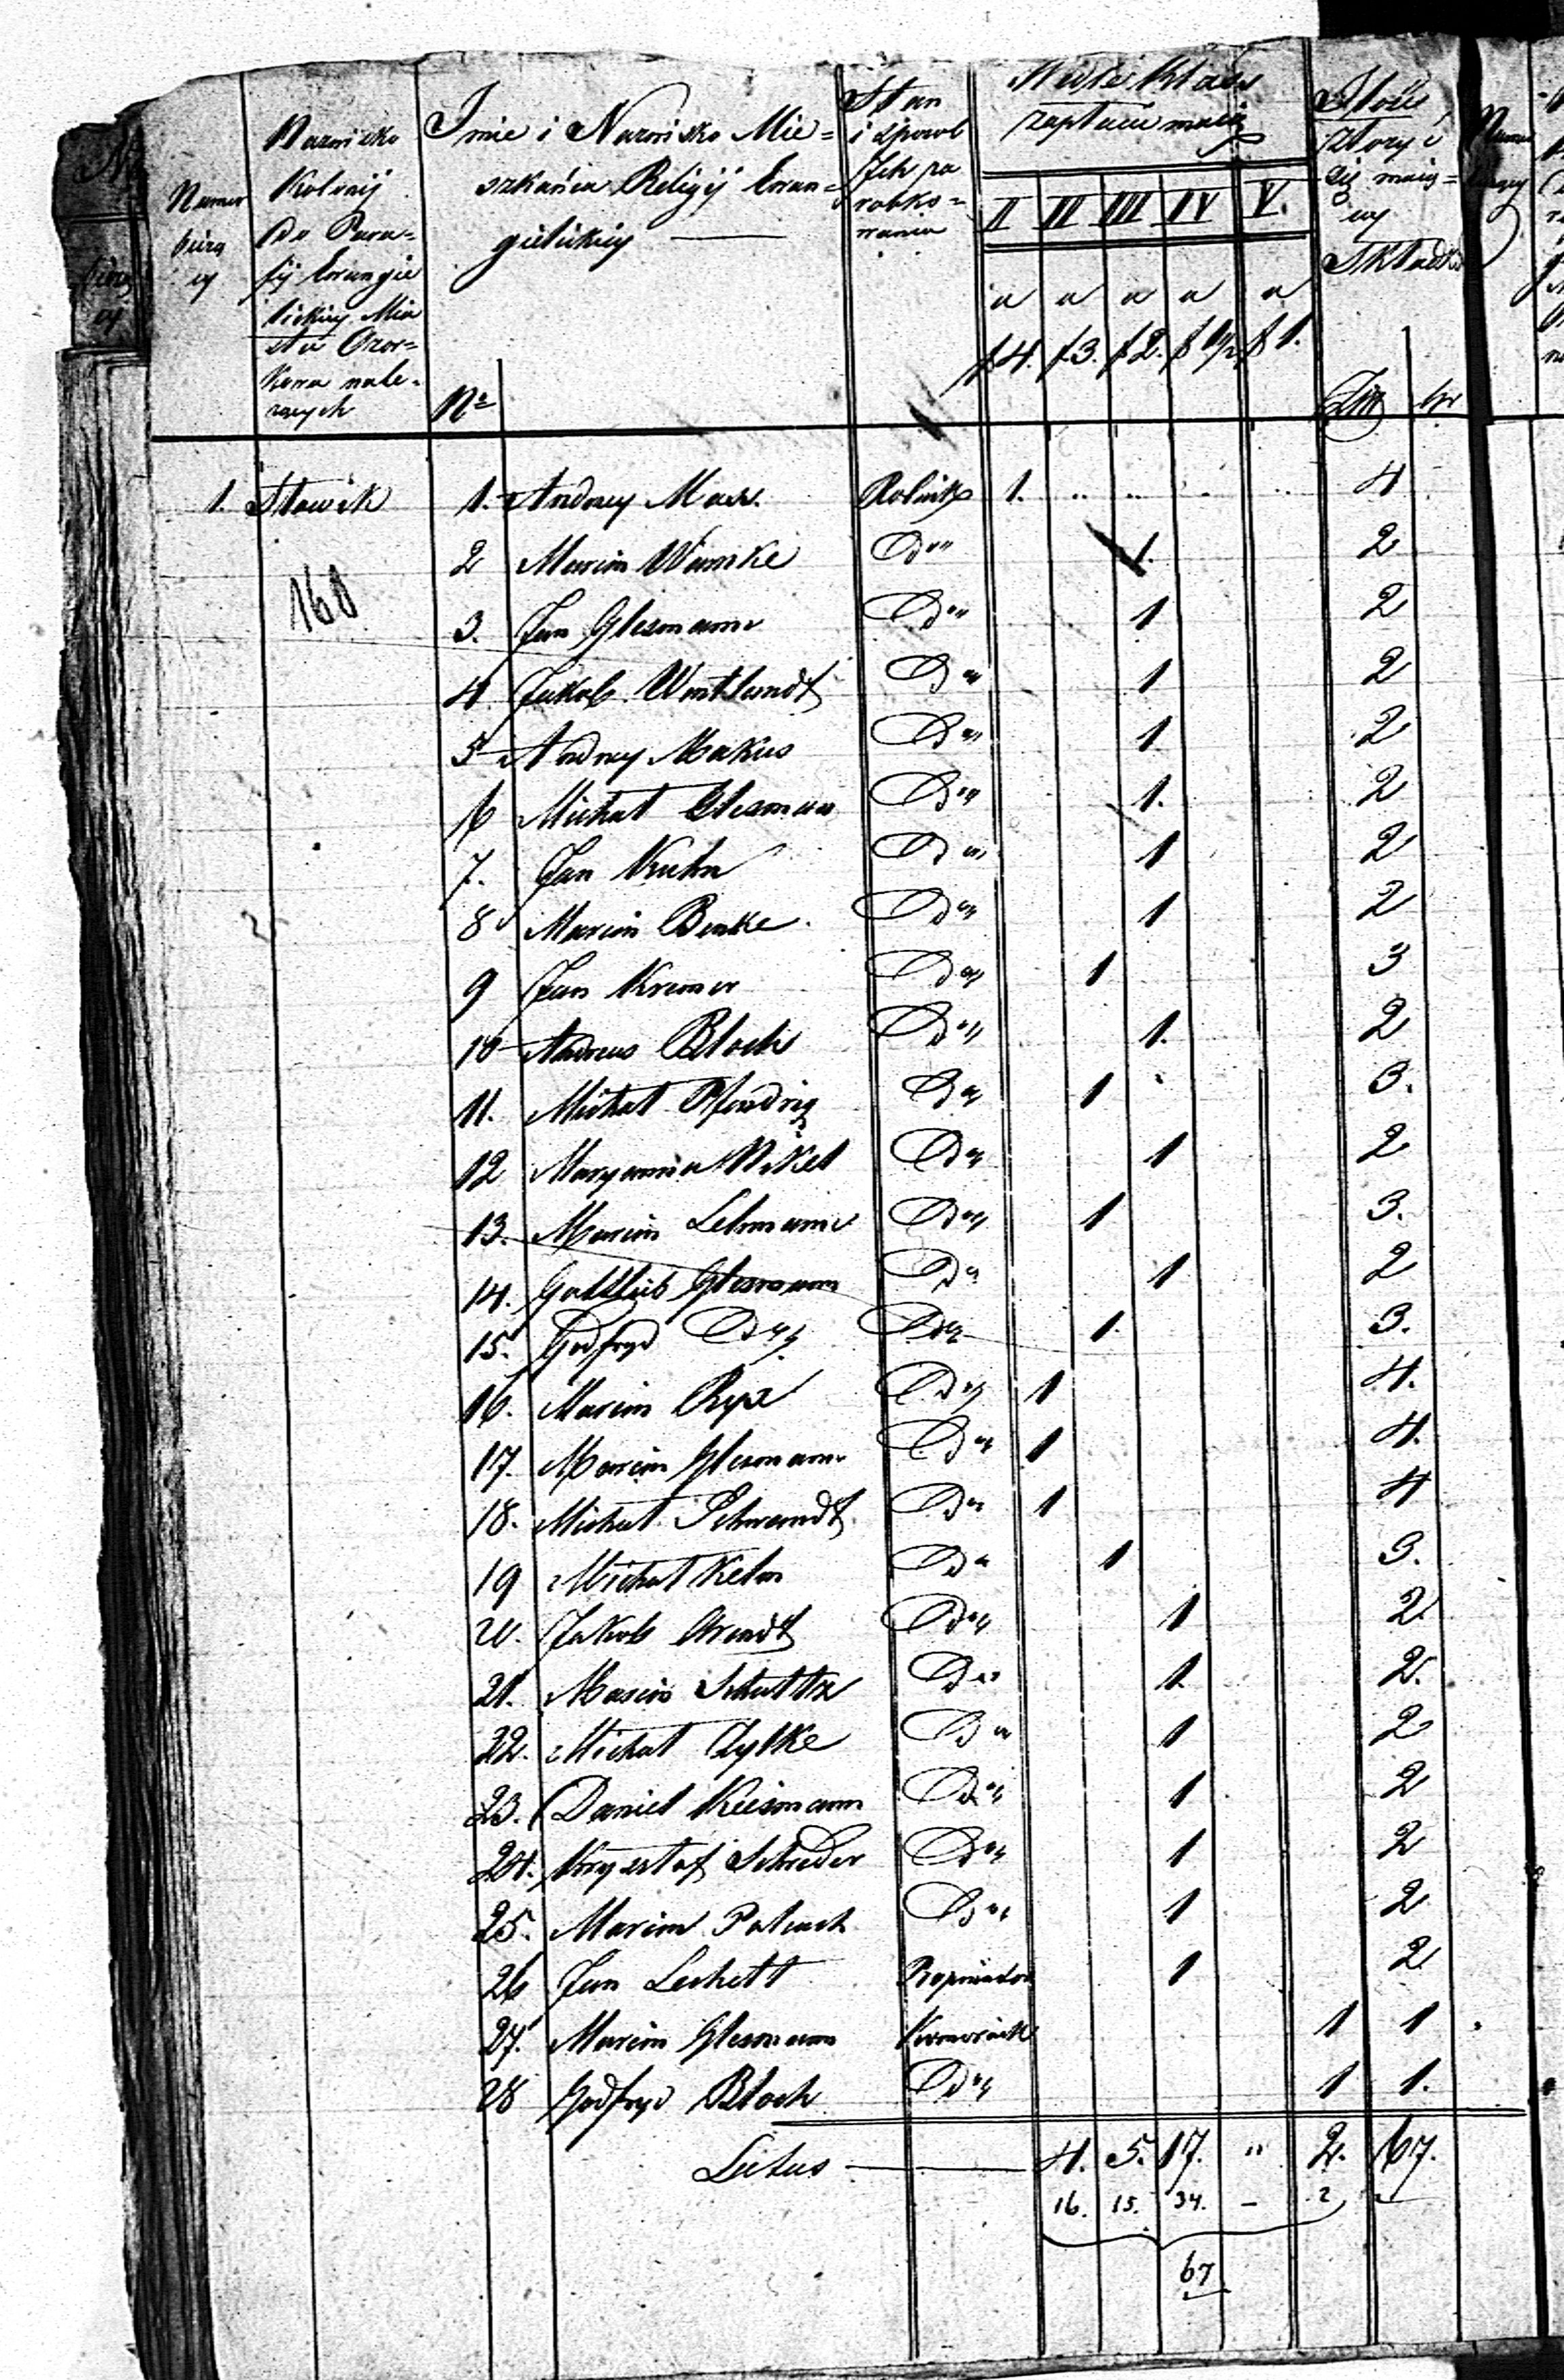 Numer
bieżą
cy
Nazwisko
Kolonij
do Para=
fij Ewangie
lickiey Mia
sta Ozor=
kowa nale=
żących
Imie i Nazwisko Mie=
szkańca Religij Ewan=
gielickiey
Nº
Stan
i sposob
Ich za
robko=
wania
Wedle Klass
zapłacić maią
II III III IV V.
a a a a a
f 4. f 3. f 2. f 1/2 f 1.
Ilość
którą
się maią=
cy
Składki
Złt gr
1. Słowik 1. Andrzey Max. Rolnik 1. 4
160
2 Marcin Wamke D" 1. 2
3. Jan Glesmann D" 1 2
4 Jakob Wentlandt D" 1 2
5 Andrzey Makus D" 1 2
6 Michał Glesmann D" 1. 2
7. Jan Kuhn D" 1 2
8 Marcin Benke D" 1 2
9 Jan Kremer D" 1 3
10 Andreas Bloch D" 1. 2
11. Michał D" 1 3.
12 Maryanna Nikel D" 1 2
13. Marcin Lehmann D" 1 3.
14. Gottlieb Glesmann D" 1 2
15. Godfryd D" D" 1. 3.
16. Marcin Ryx D" 1 4.
17. Marcin Glesmann D" 1 4.
18. Michał Schwandt D" 1 4
19 Michał Kelm D" 1 3.
20. Jakob Arendt D" 1 2.
21. Marcin Schulttz D" 1. 2.
22. Michał Zylke D" 1 2
23. Daniel Kiesmann D" 1 2
24. Krysztof Schreder D" 1 2
25. Marcin D" 1 2
26 Jan Leskett Propinator 1 2
27. Marcin Glesmann Komornik 1 1
28 Godfryd Bloch D" 1 1.
Latus 4. 5. 17. " 2. 67.
16. 15. 34. – 2
67